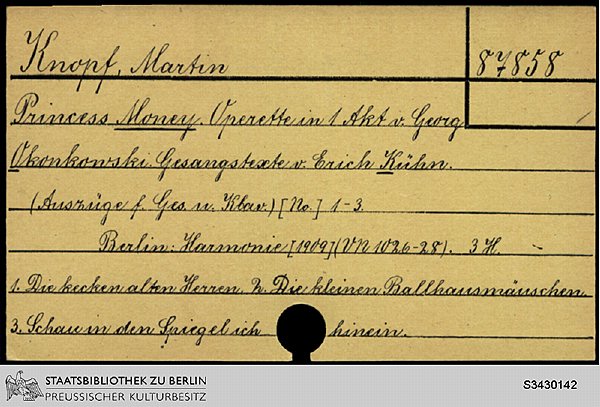 Knopf, Martin
87858
Princess Money. Operette in 1 Akt v. Georg
Okonkowski. Gesangstexte v. Erich Kühn.
(Auszüge f. Ges. u. Klav.) [No.] 1-3.
Berlin: Harmonie [1909] (VN 1026-28). 3 H.
1. Die kecken alten Herren. 2. Die kleinen Ballhausmäuschen.
3. Schau in den Spiegel ich hinein.
STAATSBIBLIOTHEK ZU BERLIN
PREUSSISCHER KULTURBESITZ
S3430142